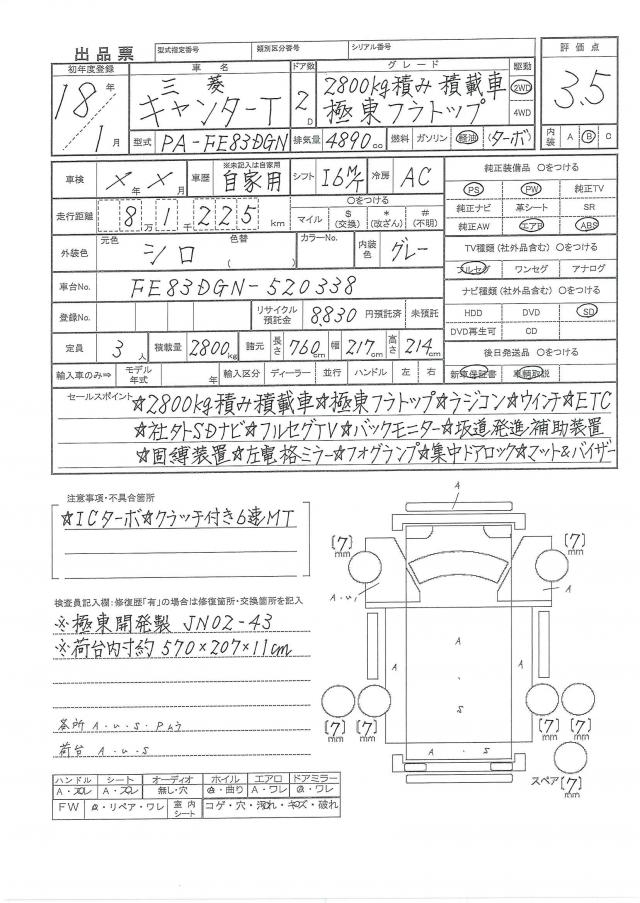 出品票 型式指定番号 類別区分番号 シリアル番号
初年度登録 車名 ドア数 グレード 駆動 評価点
18年 三菱 2D 2800kg積み 積載車 2WD 3.5
キャンターT 極東フラトップ 4WD
1月 型式 PA-FE83DGN 排気量 4890cc 燃料 ガソリン 軽油 (ターボ) 内装 A B C
車検 ×年×月 車歴 ※未記入は自家用 自家用 シフト I6M/T 冷房 AC 純正装備品 ○をつける
PS PW 純正TV
走行距離 8万1千225km ○をつける
マイル $(交換) *(改ざん) #(不明)
純正ナビ 革シート SR
純正AW エアB ABS
外装色 元色 シロ 色替 ( ) カラーNo. 内装色 グレー
TV種類(社外品含む) ○をつける
フルセグ ワンセグ アナログ
車台No. FE83DGN-520338
ナビ種類(社外品含む) ○をつける
登録No. リサイクル預託金 8,830 円預託済 未預託
HDD DVD SD
DVD再生可 CD
定員 3人 積載量 2800kg 諸元 長さ 760cm 幅 217cm 高さ 214cm
後日発送品 ○をつける
輸入車のみ⇒ モデル年式 年 輸入区分 ディーラー 並行 ハンドル 左 右 新車保証書 車輌取説
セールスポイント ☆2800kg積み積載車☆極東フラトップ☆ラジコン☆ウインチ☆ETC
☆社外SDナビ☆フルセグTV☆バックモニター☆坂道発進補助装置
☆固縛装置☆左電格ミラー☆フォグランプ☆集中ドアロック☆マット&バイザー
注意事項・不具合箇所
☆ICターボ☆クラッチ付き6速MT
検査員記入欄:修復歴「有」の場合は修復箇所・交換箇所を記入
※極東開発製 JN02-43
※荷台内寸約 570×207×11cm
各所 A・U・S・Pムラ
荷台 A・U・S
A
[7]mm [7]mm
A・U, A
A A
S
[7]mm [7]mm [7]mm [7]mm
A・S
スペア [7]mm
ハンドル シート オーディオ ホイル エアロ ドアミラー
A・スレ A・スレ 無し・穴 A・曲り A・ワレ A・ワレ
FW A・リペア・ワレ 室内シート コゲ・穴・汚れ・キズ・破れ